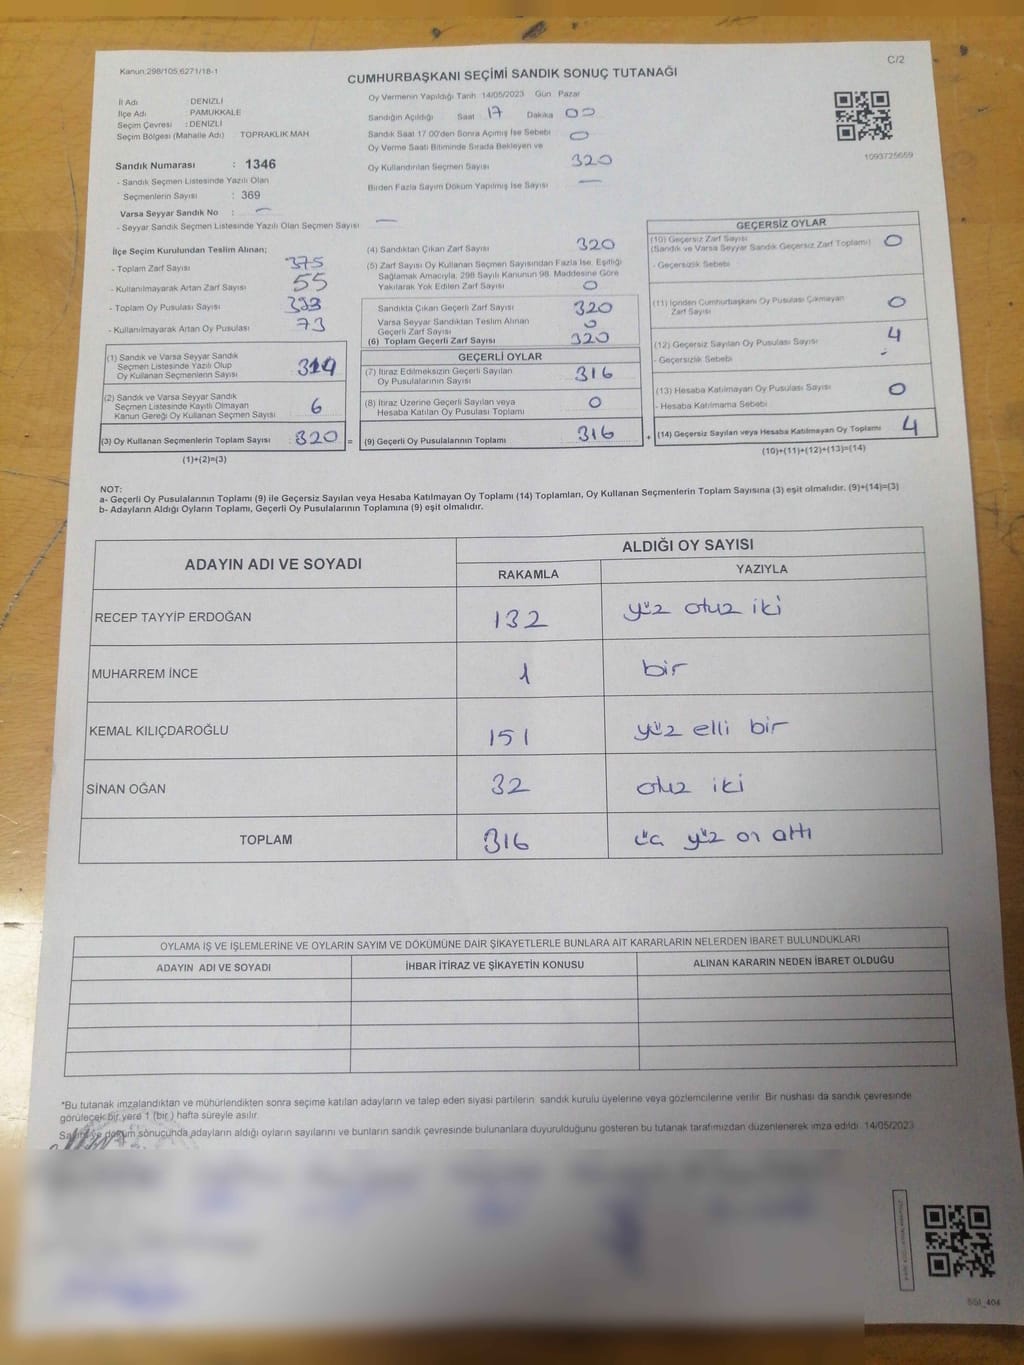 Kanun,298/105,6271/18-1
C/2
CUMHURBAŞKANI SEÇİMİ SANDIK SONUÇ TUTANAĞI
İl Adı : DENİZLİ
İlçe Adı : PAMUKKALE
Seçim Çevresi : DENİZLİ
Seçim Bölgesi (Mahalle Adı) : TOPRAKLIK MAH.
Sandık Numarası : 1346
- Sandık Seçmen Listesinde Yazılı Olan
Seçmenlerin Sayısı : 369
Varsa Seyyar Sandık No : —
- Seyyar Sandık Seçmen Listesinde Yazılı Olan Seçmen Sayısı —
Oy Vermenin Yapıldığı Tarih 14/05/2023 Gün Pazar
Sandığın Açıldığı Saat 17 Dakika 00
Sandık Saat 17.00'den Sonra Açımış İse Sebebi 0
Oy Verme Saati Bitiminde Sırada Bekleyen ve
Oy Kullandırılan Seçmen Sayısı 320
Birden Fazla Sayım Döküm Yapılmış İse Sayısı —
1093725659
İlçe Seçim Kurulundan Teslim Alınan;
- Toplam Zarf Sayısı 375
- Kullanılmayarak Artan Zarf Sayısı 55
- Toplam Oy Pusulası Sayısı 393
- Kullanılmayarak Artan Oy Pusulası 73
(1) Sandık ve Varsa Seyyar Sandık
Seçmen Listesinde Yazılı Olup
Oy Kullanan Seçmenlerin Sayısı 314
(2) Sandık ve Varsa Seyyar Sandık
Seçmen Listesinde Kayıtlı Olmayan
Kanun Gereği Oy Kullanan Seçmen Sayısı 6
(3) Oy Kullanan Seçmenlerin Toplam Sayısı : 320 =
(1)+(2)=(3)
(4) Sandıktan Çıkan Zarf Sayısı 320
(5) Zarf Sayısı Oy Kullanan Seçmen Sayısından Fazla İse, Eşitliği
Sağlamak Amacıyla, 298 Sayılı Kanunun 98. Maddesine Göre
Yakılarak Yok Edilen Zarf Sayısı 0
Sandıkta Çıkan Geçerli Zarf Sayısı 320
Varsa Seyyar Sandıktan Teslim Alınan
Geçerli Zarf Sayısı 0
(6) Toplam Geçerli Zarf Sayısı 320
GEÇERLİ OYLAR
(7) İtiraz Edilmeksizin Geçerli Sayılan
Oy Pusulalarının Sayısı 316
(8) İtiraz Üzerine Geçerli Sayılan veya
Hesaba Katılan Oy Pusulası Toplamı 0
(9) Geçerli Oy Pusulalarının Toplamı 316 +
GEÇERSİZ OYLAR
(10) Geçersiz Zarf Sayısı
(Sandık ve Varsa Seyyar Sandık Geçersiz Zarf Toplamı) 0
- Geçersizlik Sebebi
(11) İçinden Cumhurbaşkanı Oy Pusulası Çıkmayan
Zarf Sayısı 0
(12) Geçersiz Sayılan Oy Pusulası Sayısı 4
- Geçersizlik Sebebi -
(13) Hesaba Katılmayan Oy Pusulası Sayısı 0
- Hesaba Katılmama Sebebi
(14) Geçersiz Sayılan veya Hesaba Katılmayan Oy Toplamı 4
(10)+(11)+(12)+(13)=(14)
NOT:
a- Geçerli Oy Pusulalarının Toplamı (9) ile Geçersiz Sayılan veya Hesaba Katılmayan Oy Toplamı (14) Toplamları, Oy Kullanan Seçmenlerin Toplam Sayısına (3) eşit olmalıdır. (9)+(14)=(3)
b- Adayların Aldığı Oyların Toplamı, Geçerli Oy Pusulalarının Toplamına (9) eşit olmalıdır.
ADAYIN ADI VE SOYADI
ALDIĞI OY SAYISI
RAKAMLA YAZIYLA
RECEP TAYYİP ERDOĞAN 132 yüz otuz iki
MUHARREM İNCE 1 bir
KEMAL KILIÇDAROĞLU 151 yüz elli bir
SİNAN OĞAN 32 otuz iki
TOPLAM 316 üç yüz on altı
OYLAMA İŞ VE İŞLEMLERİNE VE OYLARIN SAYIM VE DÖKÜMÜNE DAİR ŞİKAYETLERLE BUNLARA AİT KARARLARIN NELERDEN İBARET BULUNDUKLARI
ADAYIN ADI VE SOYADI İHBAR İTİRAZ VE ŞİKAYETİN KONUSU ALINAN KARARIN NEDEN İBARET OLDUĞU
*Bu tutanak imzalandıktan ve mühürlendikten sonra seçime katılan adayların ve talep eden siyasi partilerin sandık kurulu üyelerine veya gözlemcilerine verilir. Bir nüshası da sandık çevresinde
görülecek bir yere 1 (bir ) hafta süreyle asılır.
Sayım ve döküm sonucunda adayların aldığı oyların sayılarını ve bunların sandık çevresinde bulunanlara duyurulduğunu gösteren bu tutanak tarafımızdan düzenlenerek imza edildi. 14/05/2023
SSİ_404